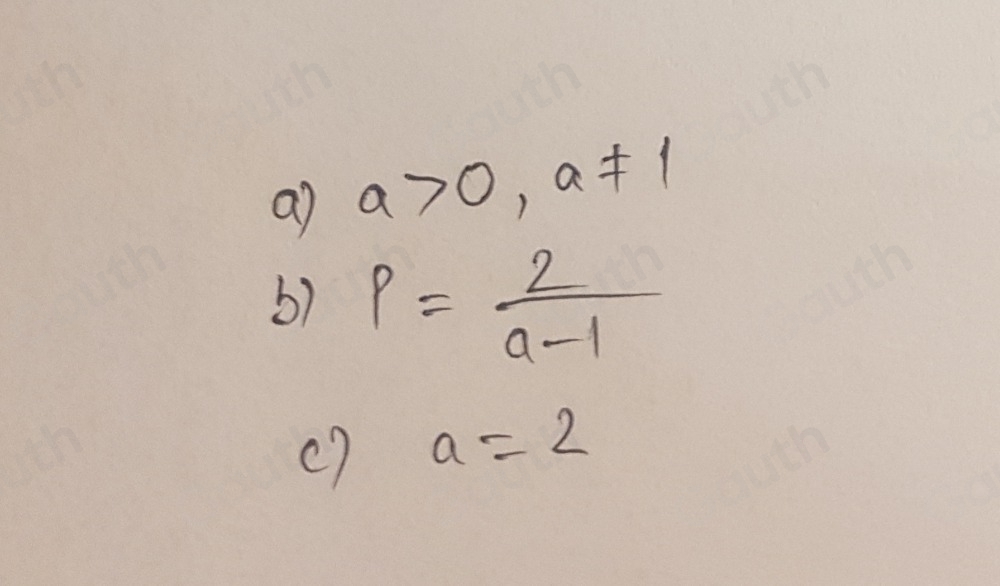 a) a > 0, a ≠ 1
b) P = \frac{2}{a-1}
c) a = 2